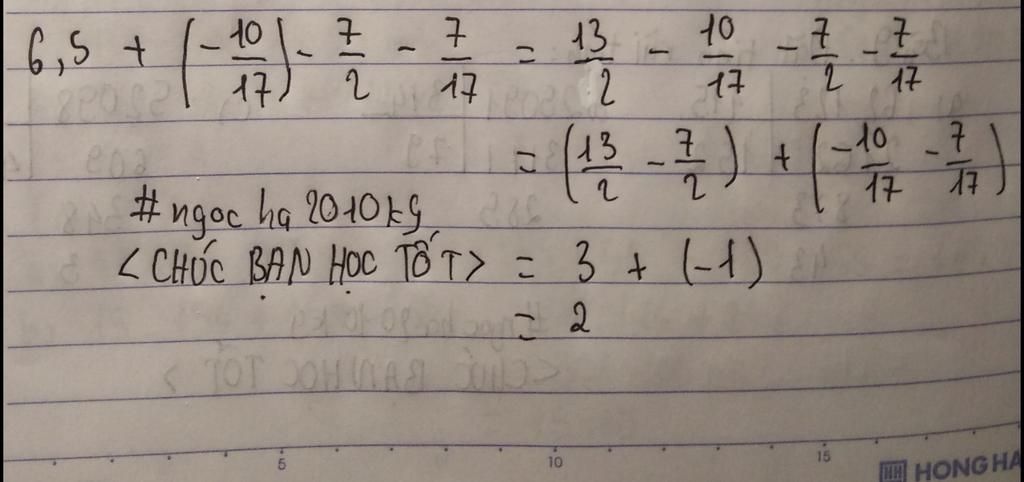 6,5 + (-10/17) - 7/2 - 7/17 = 13/2 - 10/17 - 7/2 - 7/17
= (13/2 - 7/2) + (-10/17 - 7/17)
#ngoc hạ 2010kg
<CHÚC BẠN HỌC TỐT> = 3 + (-1)
= 2
5 10 15
HH HONG HA